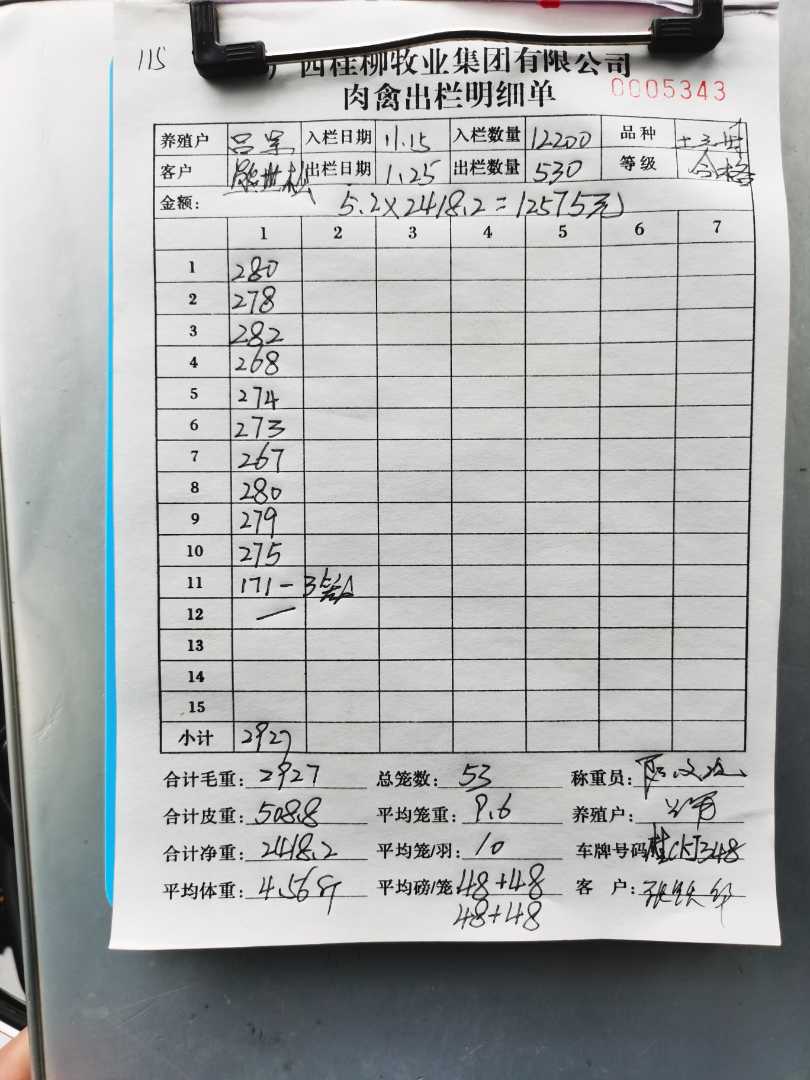 115
广西桂柳牧业集团有限公司
肉禽出栏明细单 0005343
养殖户 吕军 入栏日期 11.15 入栏数量 12200 品种
客户 出栏日期 1.25 出栏数量 530 等级 合格
金额: 5.2×2418.2=12575元
1 2 3 4 5 6 7
1 280
2 278
3 282
4 268
5 274
6 273
7 267
8 280
9 279
10 275
11 171-3笼
12 —
13
14
15
小计 2927
合计毛重: 2927 总笼数: 53 称重员:
合计皮重: 508.8 平均笼重: 9.6 养殖户:
合计净重: 2418.2 平均笼/羽: 10 车牌号码
平均体重: 4.56斤 平均磅/笼: 48+48 客户:
48+48